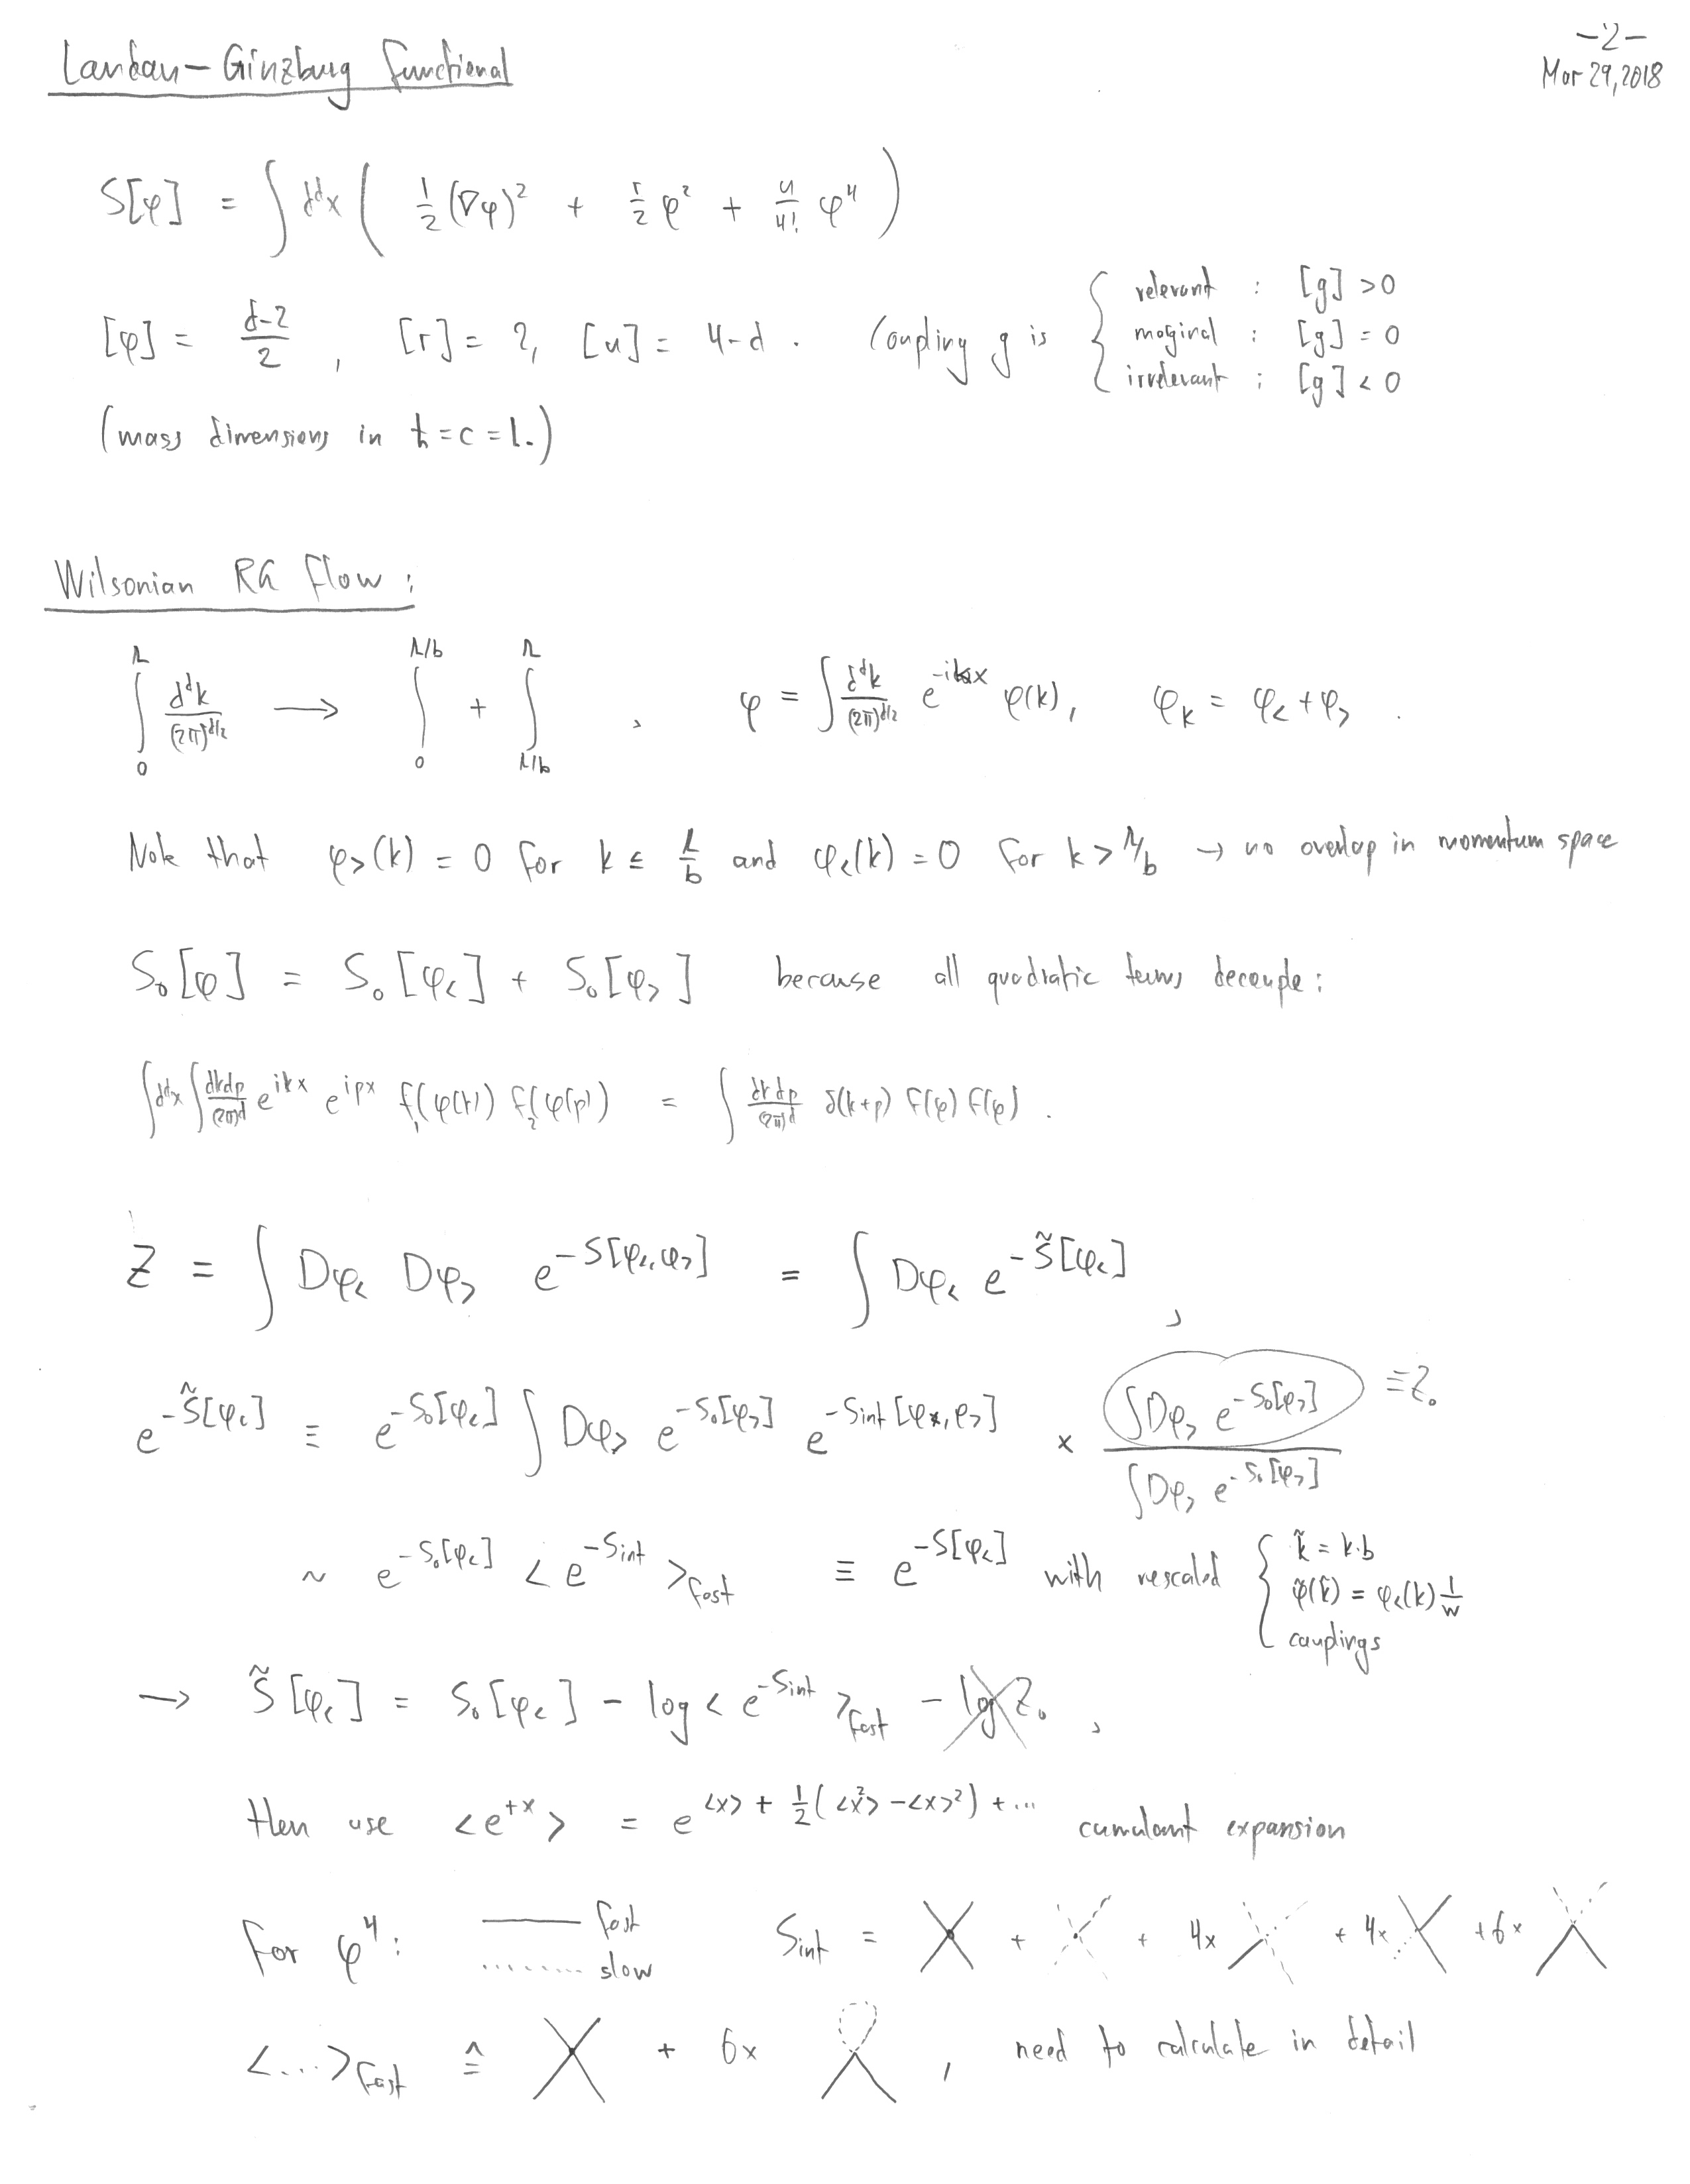 -2-
Landau-Ginzburg functional
Mar 29, 2018
S[φ] = ∫ d^dx ( 1/2 (∇φ)² + r/2 φ² + u/4! φ⁴ )
[φ] = (d-2)/2 , [r] = 2, [u] = 4-d . Coupling g is { relevant : [g] > 0
moginal : [g] = 0
irrelevant : [g] < 0
(mass dimensions in ħ = c = 1.)
Wilsonian RG flow :
∫_0^Λ d^dk/(2π)^{d/2} → ∫_0^{Λ/b} + ∫_{Λ/b}^Λ , φ = ∫ d^dk/(2π)^{d/2} e^{-ikx} φ(k), φ_k = φ_< + φ_> .
Note that φ_>(k) = 0 for k ≤ Λ/b and φ_<(k) = 0 for k > Λ/b → no overlap in momentum space
S₀[φ] = S₀[φ_<] + S₀[φ_>] because all quadratic terms decouple :
∫d^dx ∫ dkdp/(2π)^d e^{ikx} e^{ipx} f₁(φ(k)) f₂(φ(p)) = ∫ dkdp/(2π)^d δ(k+p) f(φ) f(φ) .
Z = ∫ Dφ_< Dφ_> e^{-S[φ_<,φ_>]} = ∫ Dφ_< e^{-S̃[φ_<]} ,
e^{-S̃[φ_<]} ≡ e^{-S₀[φ_<]} ∫ Dφ_> e^{-S₀[φ_>]} e^{-Sint[φ_<,φ_>]} × ∫Dφ_> e^{-S₀[φ_>]} / ∫Dφ_> e^{-S₀[φ_>]} ≡ Z₀
~ e^{-S₀[φ_<]} < e^{-Sint} >_fast ≡ e^{-S[φ_<]} with rescaled { k̃ = k·b
φ̃(k̃) = φ_<(k) 1/w
couplings
→ S̃[φ_<] = S₀[φ_<] - log < e^{-Sint} >_fast - log Z₀ ,
then use < e^{+x} > = e^{<x> + 1/2 (<x²> - <x>²) + ...} cumulant expansion
For φ⁴ : fast Sint = + + 4x + 4x + 6x
slow
<...>_fast ≙ + 6x , need to calculate in detail